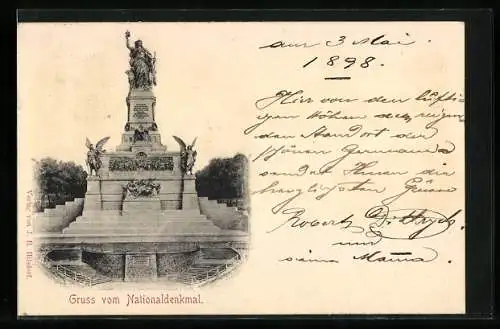 am 3 Mai.
1898.
Hier von den luftigen
Höhen des
den Standort der
schönen Germania
sendet Ihnen die
herzlichsten Grüsse
Robert
und
seine Mama.
Gruss vom Nationaldenkmal.